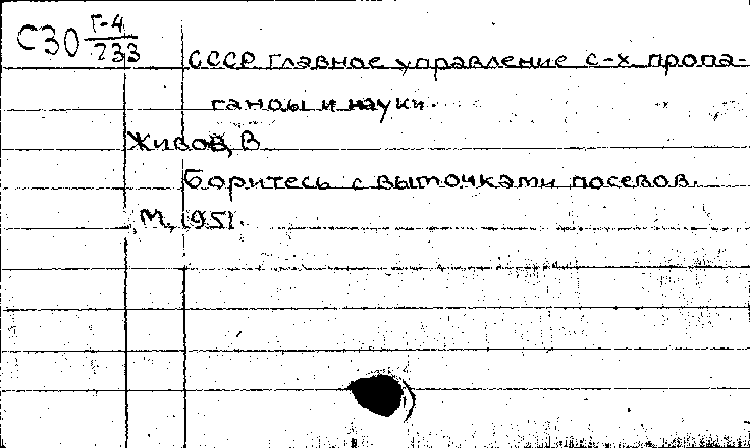 С30 Г-4/233
СССР Главное управление с-х пропа-
ганды и науки.
Живов, В
Боритесь с выточками посевов.
М., 1951.